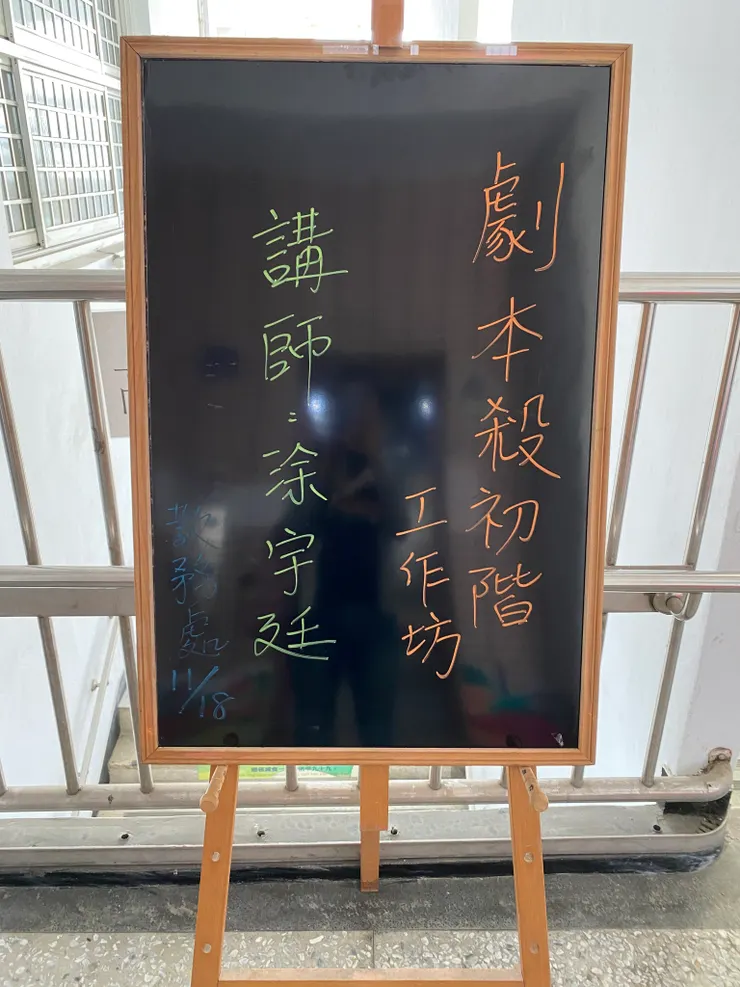 劇本殺初階
工作坊
講師：涂宇廷
教務處
11/18